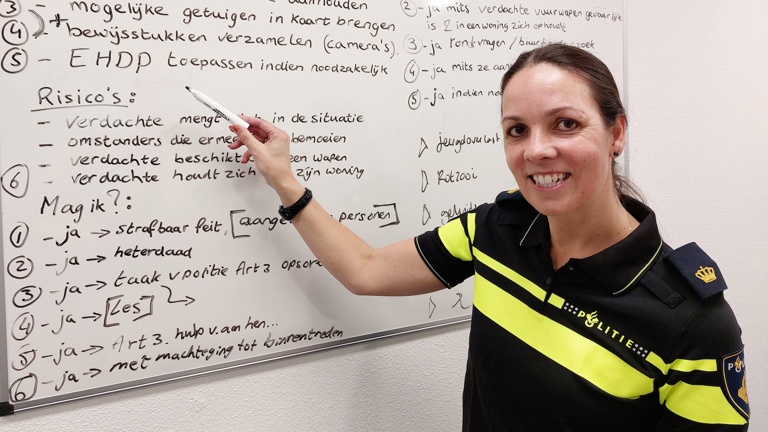 ③ - aanhouden
mogelijke getuigen in kaart brengen
④ + bewijsstukken verzamelen (camera's).
⑤ - EHDP toepassen indien noodzakelijk
Risico's:
- verdachte mengt in de situatie
- omstanders die er bemoeien
- verdachte beschikt een wapen
⑥ - verdachte houdt zich zijn woning
Mag ik?:
① - ja → strafbaar feit, personen]
② - ja → heterdaad
③ - ja → taak v politie Art 3
④ - ja → [les]
⑤ - ja → Art 3. hulp v. aan hen...
⑥ - ja → met machteging tot binnentreden
② - ja mits verdachte vuurwapen gevaarlijk
is 2 in een woning zich ophoudt
③ - ja rontvragen / buurt zoek
④ - ja mits ze
⑤ - ja indien
▷ jeugdoverlast
▷ Rotzooi
▷
▷
POLITIE
POLITIE